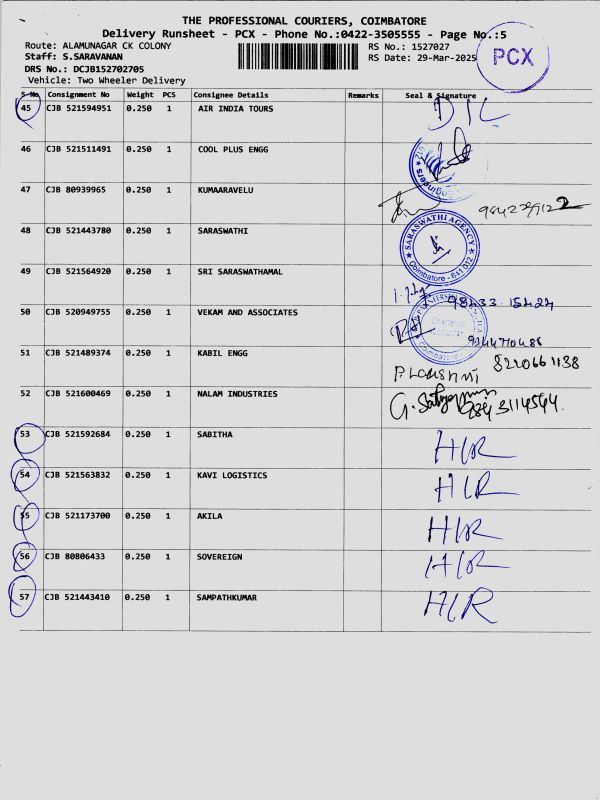 THE PROFESSIONAL COURIERS, COIMBATORE
Delivery Runsheet - PCX - Phone No.:0422-3505555 - Page No.:5
Route: ALAMUNAGAR CK COLONY
RS No.: 1527027
Staff: S.SARAVANAN
RS Date: 29-Mar-2025
PCX
DRS No.: DCJB152702705
Vehicle: Two Wheeler Delivery
S No Consignment No Weight PCS Consignee Details Remarks Seal & Signature
45 CJB 521594951 0.250 1 AIR INDIA TOURS D/L
46 CJB 521511491 0.250 1 COOL PLUS ENGG
47 CJB 80939965 0.250 1 KUMAARAVELU
48 CJB 521443780 0.250 1 SARASWATHI
SARASWATHI AGENCY
Coimbatore - 641 012
49 CJB 521564920 0.250 1 SRI SARASWATHAMAL
98433-15424
50 CJB 520949755 0.250 1 VEKAM AND ASSOCIATES
51 CJB 521489374 0.250 1 KABIL ENGG 8220661138
52 CJB 521600469 0.250 1 NALAM INDUSTRIES 9843114594.
53 CJB 521592684 0.250 1 SABITHA H/R
54 CJB 521563832 0.250 1 KAVI LOGISTICS H/R
55 CJB 521173700 0.250 1 AKILA H/R
56 CJB 80806433 0.250 1 SOVEREIGN H/R
57 CJB 521443410 0.250 1 SAMPATHKUMAR H/R